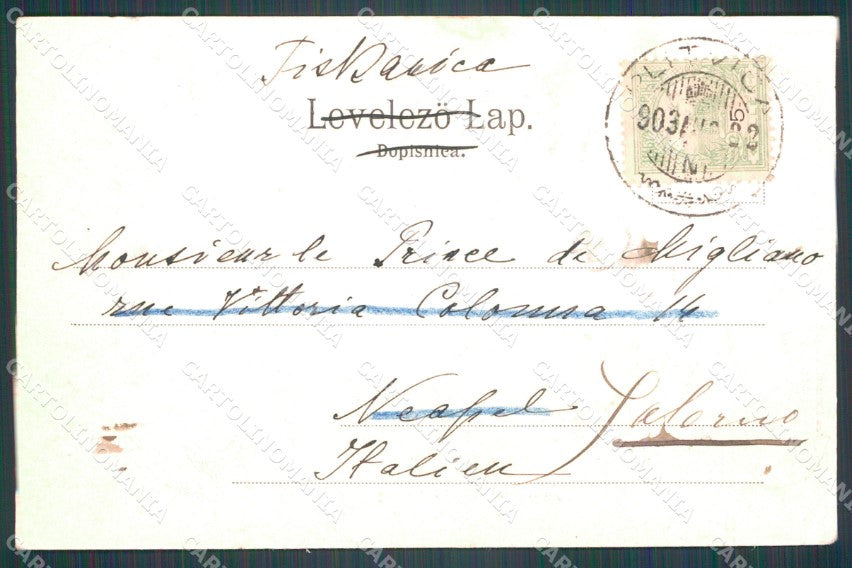 Tiskanica
Levelező Lap.
Dopisnica.
903
Monsieur le Prince de Migliano
rue Vittoria Colonna 14
Neapel Salerno
Italien
CARTOLINOMANIA